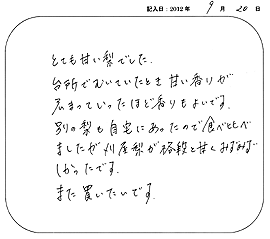 記入日：2012年 9月 20日
とても甘い梨でした。
台所でむいていたとき甘い香りが
広まっていったほど香りもよいです。
別の梨も自宅にあったので食べ比べ
ましたが刈屋梨が格段と甘くみずみず
しかったです。
また買いたいです。